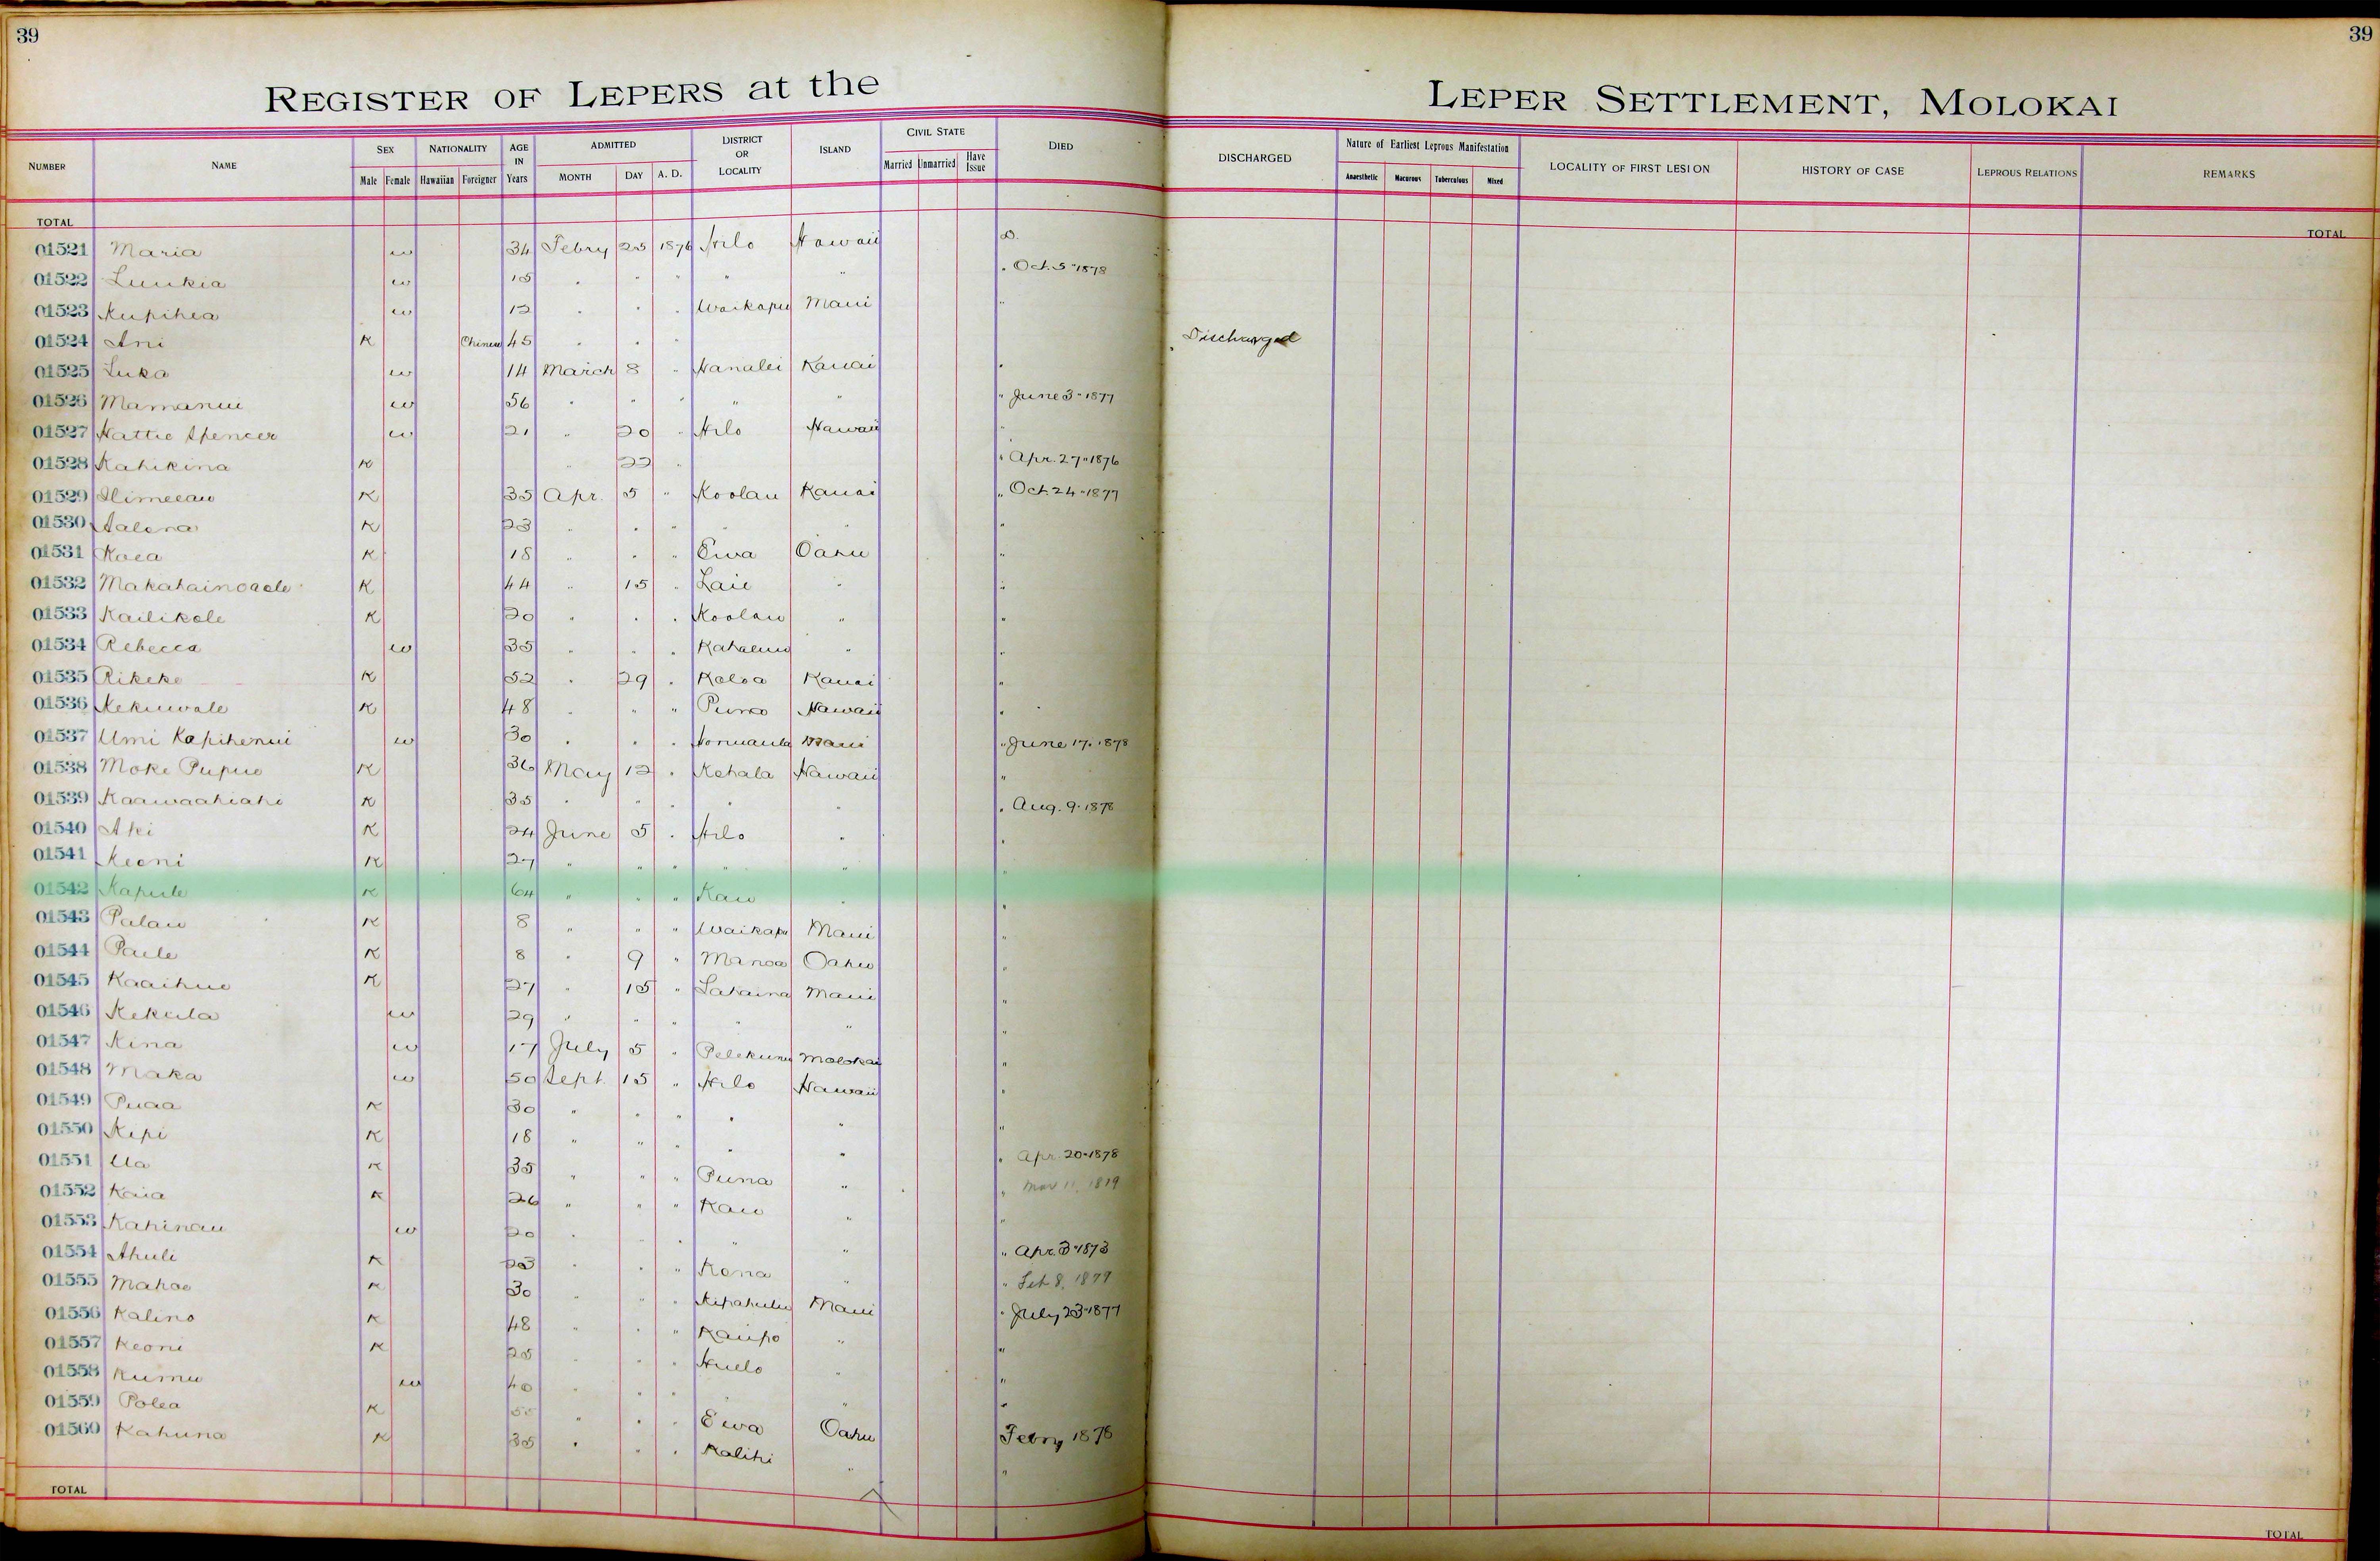 39
39
REGISTER OF LEPERS at the LEPER SETTLEMENT, MOLOKAI
NUMBER NAME SEX Male Female NATIONALITY Hawaiian Foreigner AGE IN Years ADMITTED MONTH DAY A. D. DISTRICT OR LOCALITY ISLAND CIVIL STATE Married Unmarried Have Issue DIED DISCHARGED Nature of Earliest Leprous Manifestation Anaesthetic Macurous Tuberculous Mixed LOCALITY OF FIRST LESION HISTORY OF CASE LEPROUS RELATIONS REMARKS
TOTAL TOTAL
01521 Maria w 34 Febry 25 1876 Hilo Hawaii D.
01522 Luukia w 15 " " " " " " Oct. 5 "1878
01523 Kupihea w 12 " " " Waikapu Maui "
01524 Ani K Chinese 45 " " " Discharged
01525 Luka w 14 March 8 " Hanalei Kauai "
01526 Mamanui w 56 " " " " " " June 3 - 1877
01527 Hattie Spencer w 21 " 20 " Hilo Hawaii "
01528 Kahikina K " 22 " " Apr. 27 " 1876
01529 K 35 Apr. 5 " Koolau Kauai " Oct. 24 - 1877
01530 Aalona K 23 " " " " " "
01531 Koea K 18 " " " Ewa Oahu "
01532 Makahainoaole K 44 " 15 " Laie " "
01533 Kailikole K 20 " " " Koolau " "
01534 Rebecca w 35 " " " Kahaluu " "
01535 Rikeke K 52 " 29 " Koloa Kauai "
01536 Kekuwale K 48 " " " Puna Hawaii "
01537 Umi Kapihenui w 30 " " " Honuaula Maui " June 17. 1878
01538 Moke Pupuo K 36 May 12 " Kohala Hawaii "
01539 Kaawaahiahi K 35 " " " " " " Aug. 9. 1878
01540 Aki K 24 June 5 " Hilo " "
01541 Keoni K 27 " " " " " "
01542 Kapule K 64 " " " Kau " "
01543 Palau K 8 " " " Waikapu Maui "
01544 Paele K 8 " 9 " Manoa Oahu "
01545 Kaaihue K 27 " 15 " Lahaina Maui "
01546 Kekula w 29 " " " " " "
01547 Kina w 17 July 5 " Pelekunu Molokai "
01548 Maka w 50 Sept. 15 " Hilo Hawaii "
01549 Puaa K 30 " " " " " "
01550 Kepi K 18 " " " " " "
01551 Ua K 35 " " " Puna " " Apr. 20 - 1878
01552 Kaia K 26 " " " Kau " " Mar 11, 1879
01553 Kahinau w 20 " " " " " "
01554 Ahuli K 23 " " " Kona " " Apr. 3 - 1873
01555 Mahoe K 30 " " " Kipahulu Maui " Feb 8, 1879
01556 Kalino K 48 " " " Kaupo " " July 23 - 1877
01557 Keoni K 25 " " " Huelo " "
01558 Kumu w 40 " " " " " "
01559 Polea K 55 " " " Ewa Oahu Febry 1878
01560 Kahuna K 35 " " " Kalihi " "
TOTAL TOTAL